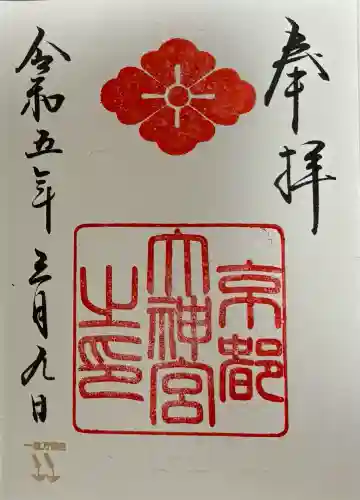 奉拝
京都
大神宮
之印
令和五年三月九日